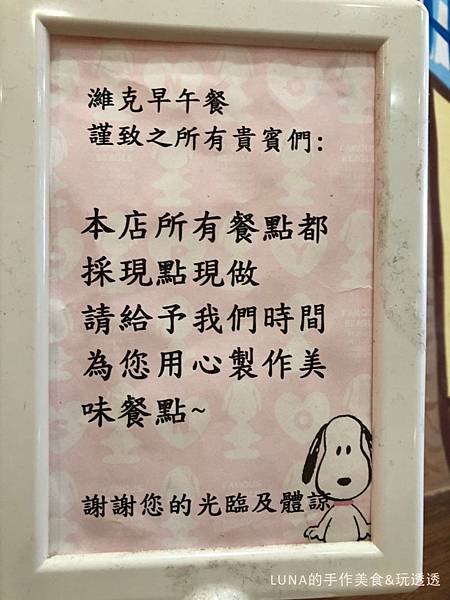 濰克早午餐
謹致之所有貴賓們:
本店所有餐點都
採現點現做
請給予我們時間
為您用心製作美
味餐點~
謝謝您的光臨及體諒
LUNA的手作美食&玩透透